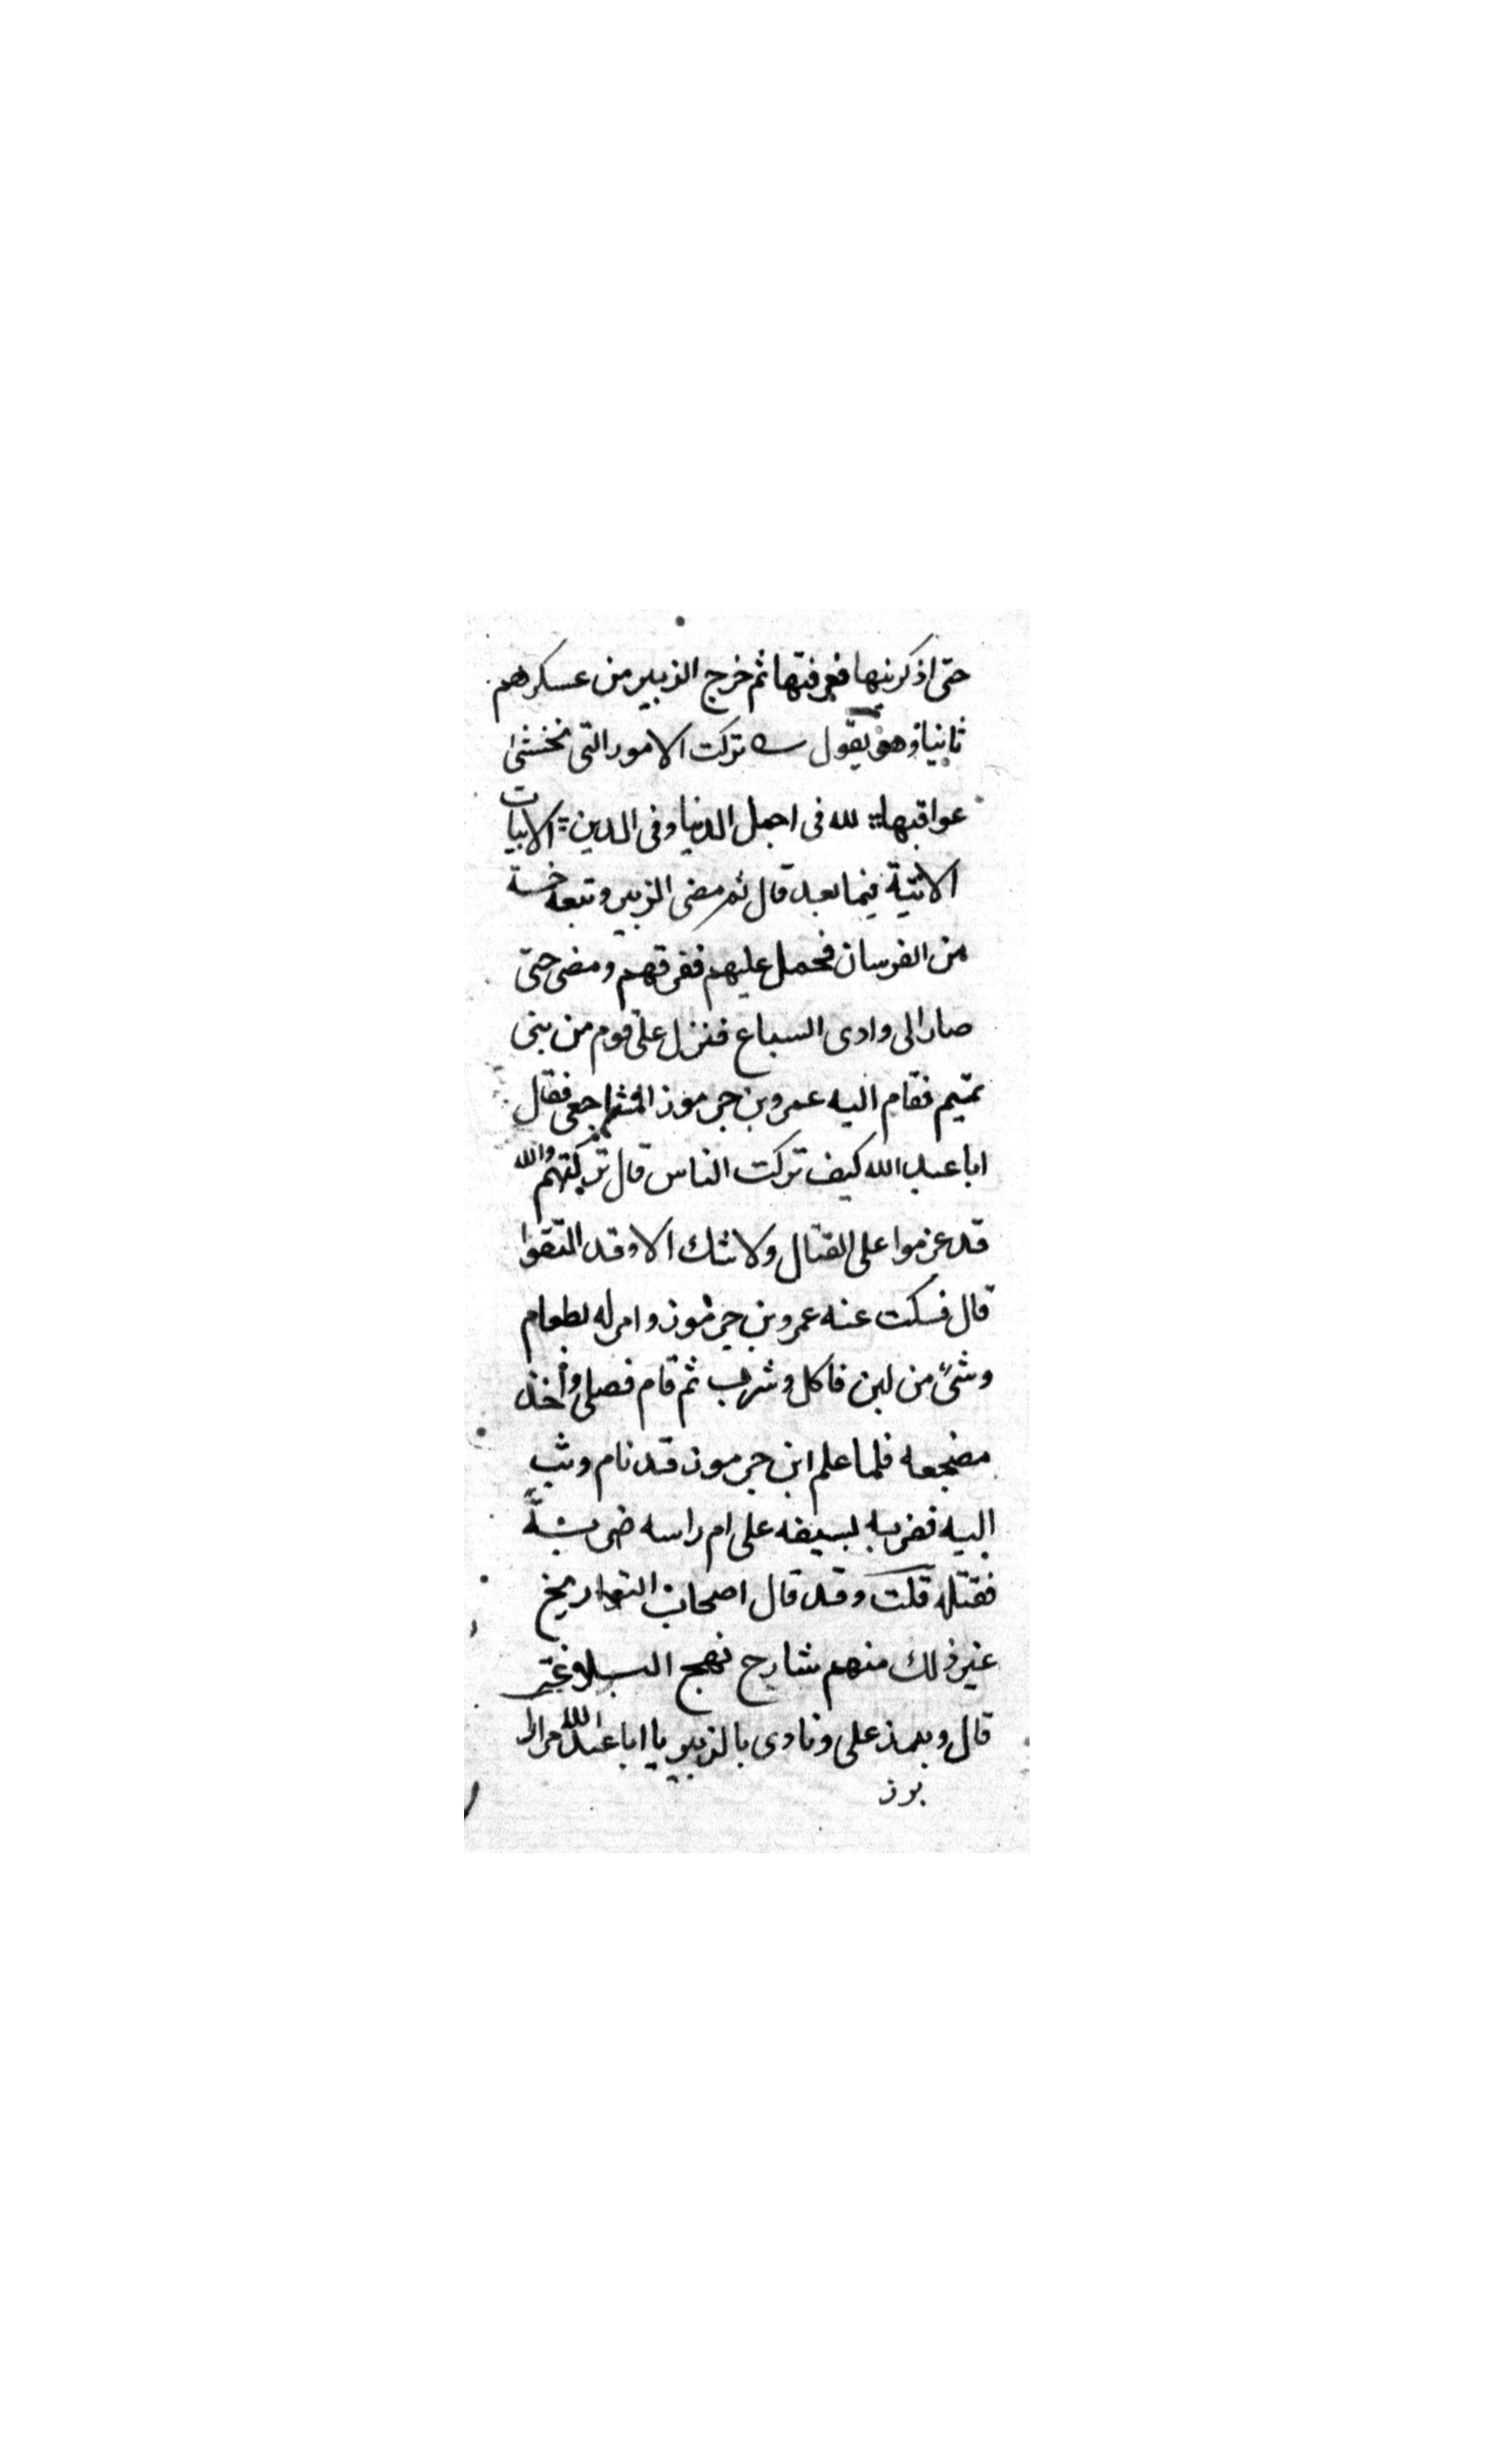 حتى اذكرنيها فعرفتها ثم خرج الزبير من عسكرهم
ثانيا وهو يقول تركت الامور التى نخشى
عواقبها لله فى اجمل الدنيا وفى الدين الابيات
الاتية فيما بعد قال ثم مضى الزبير وتبعه خمسة
من الفرسان فحمل عليهم ففرقهم ومضى حتى
صار الى وادى السباع فنزل على قوم من بنى
تميم فقام اليه عمرو بن جرموز فقال
ابا عبد الله كيف تركت الناس قال تركتهم والله
قد عزموا على القتال ولا شك الا وقد التقوا
قال فسكت عنه عمرو بن جرموز وامر له بطعام
وشئ من لبن فاكل وشرب ثم قام فصلى واخذ
مضجعه فلما علم ابن جرموز قد نام وثب
اليه فضربه بسيفه على ام راسه ضربة
فقتله قلت وقد قال اصحاب التواريخ
غير ذلك منهم شارح نهج البلاغة
قال وبرز على ونادى بالزبير يا ابا عبد الله مرارا